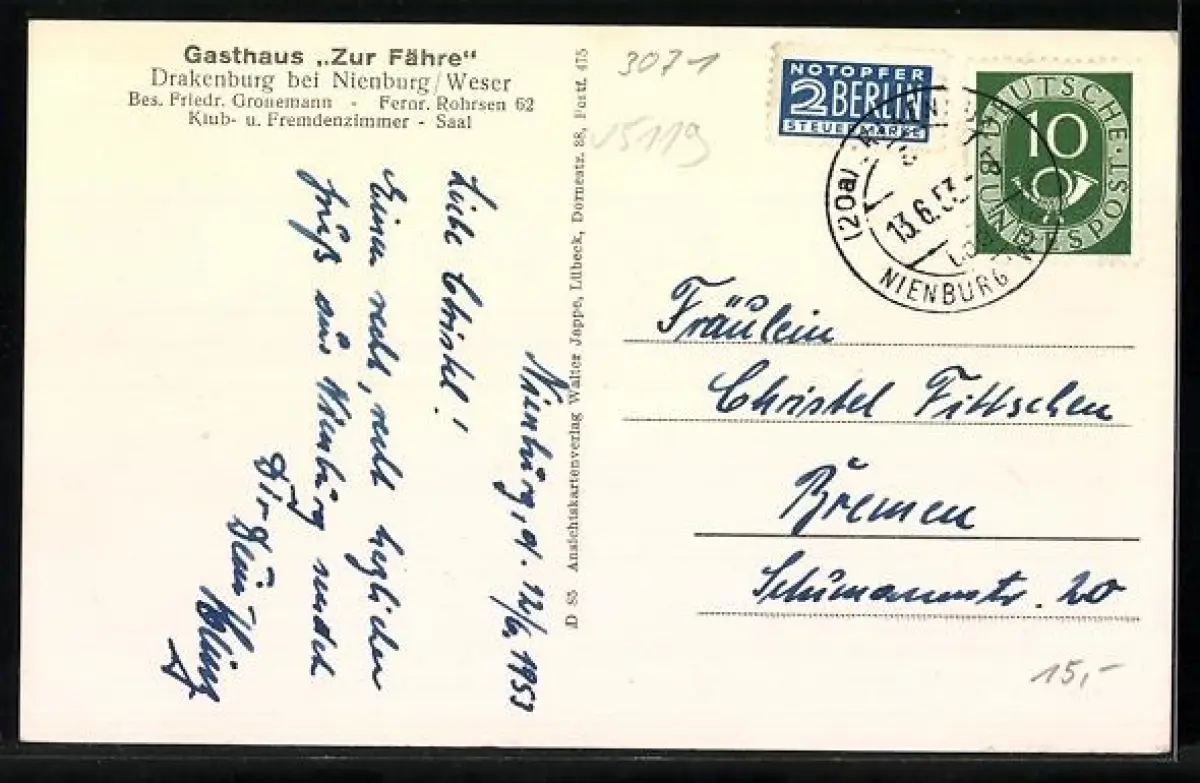 Gasthaus „Zur Fähre“
Drakenburg bei Nienburg/Weser
Bes. Friedr. Gronemann - Fernr. Rohrsen 62
Klub- u. Fremdenzimmer - Saal
Nienburg, d. 12/6. 1953
Liebe Christel!
Einen recht, recht herzlichen
Gruß aus Nienburg sendet
Dir Dein
D 85 Ansichtskartenverlag Walter Jappe, Lübeck, Dornestr. 88, Postf. 475
3071
V5119
NOTOPFER
2 BERLIN
STEUERMARKE
DEUTSCHE BUNDESPOST
10
(20a)
13.6.53
NIENBURG
Fräulein
Christel Fittschen
Bremen
Schumannstr. 20
15,-